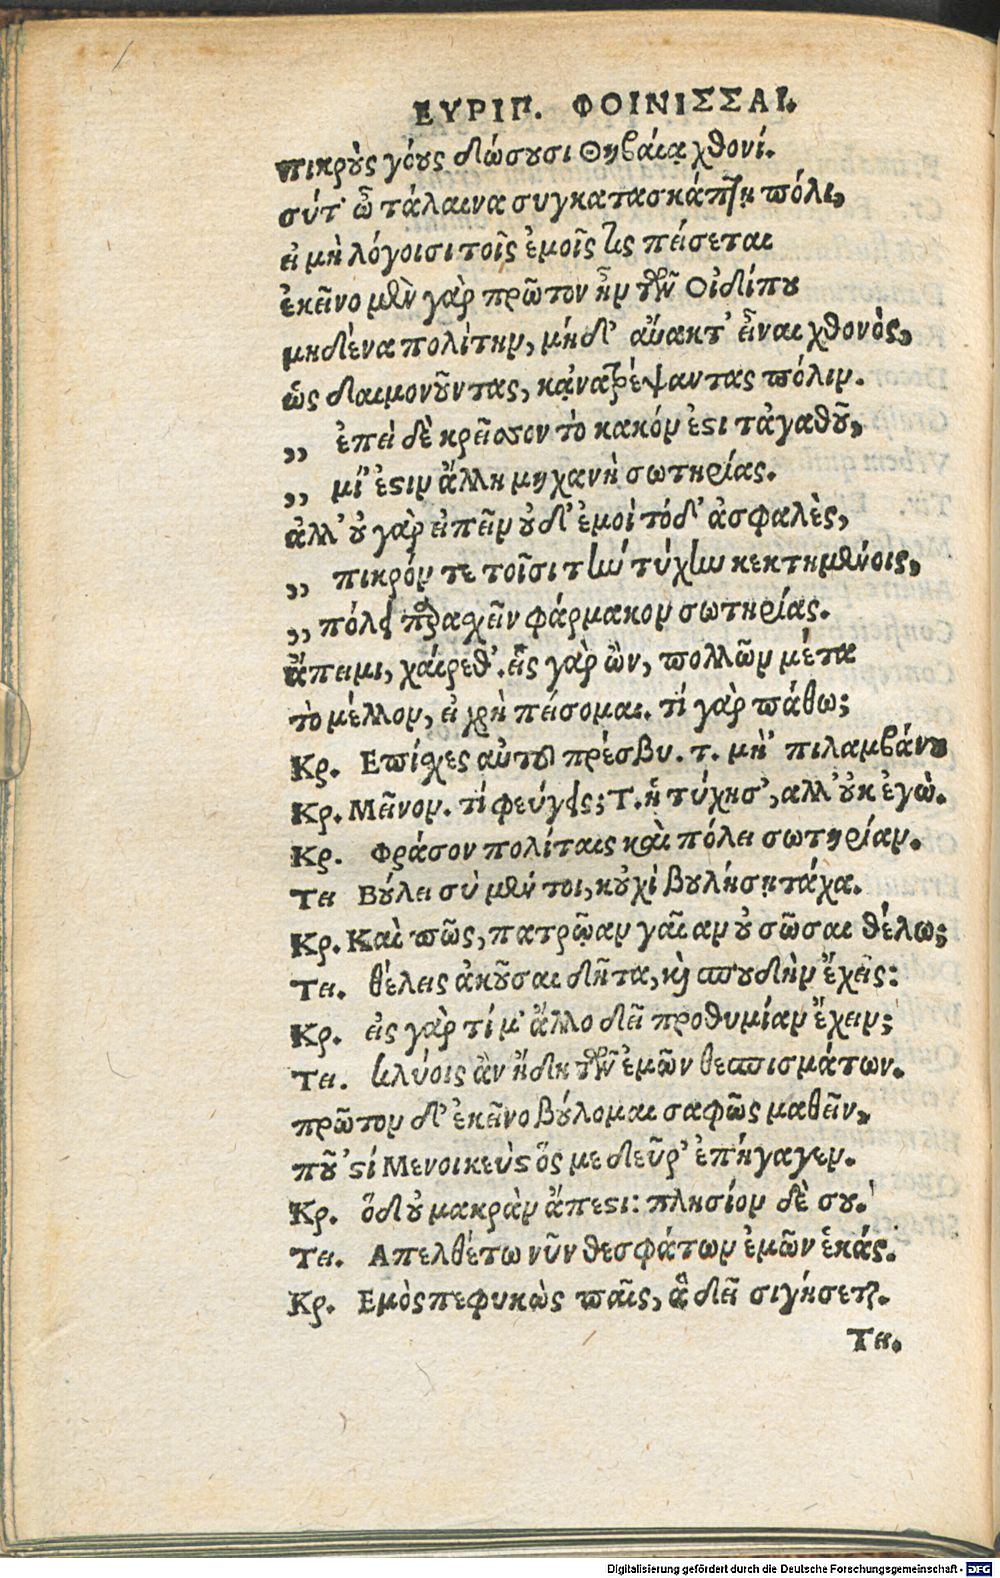 ΕΥΡΙΠ. ΦΟΙΝΙΣΣΑΙ.
πικροὺς γόους δώσουσι Θηβαίᾳ χθονί.
σύτ' ὦ τάλαινα συγκατασκάπτῃ πόλι,
εἰ μὴ λόγοισι τοῖς ἐμοῖς τις πείσεται
ἐκεῖνο μὲν γὰρ πρῶτον ἦν τῶν Οἰδίπου
μηδένα πολίτην, μήδ' ἄνακτ' εἶναι χθονὸς,
ὡς δαιμονοῦντας, κᾀνατρέψαντας πόλιν.
,, ἐπεὶ δὲ κρεῖσσον τὸ κακόν ἐστι τἀγαθοῦ,
,, μί' ἐστιν ἄλλη μηχανὴ σωτηρίας.
ἀλλ' οὐ γὰρ εἰπεῖν οὐδ' ἐμοὶ τόδ' ἀσφαλὲς,
,, πικρόν τε τοῖσι τὴν τύχην κεκτημένοις,
,, πόλει παραχεῖν φάρμακον σωτηρίας.
ἄπειμι, χαίρεθ'. εἷς γὰρ ὢν, πολλῶν μέτα
τὸ μέλλον, εἰ χρὴ πείσομαι. τί γὰρ πάθω;
Κρ. Επίσχες αὐτοῦ πρέσβυ. τ. μὴ' πιλαμβάνου
Κρ. Μεῖνον. τί φεύγεις; Τ. ἡ τύχησ', αλλ' οὐκ ἐγώ.
Κρ. Φράσον πολίταις καὶ πόλει σωτηρίαν.
Τει Βούλει σὺ μέν τοι, κοὐχὶ βουλήσῃ τάχα.
Κρ. Καὶ πῶς, πατρῴαν γαῖαν οὐ σῶσαι θέλω;
Τει. θέλεις ἀκοῦσαι δῆτα, καὶ σπουδὴν ἔχεις:
Κρ. εἰς γὰρ τί μ' ἄλλο δεῖ προθυμίαν ἔχειν;
Τει. κλύοις ἂν ἤδη τῶν ἐμῶν θεσπισμάτων.
πρῶτον δ' ἐκεῖνο βούλομαι σαφῶς μαθεῖν,
ποῦ 'στί Μενοικεὺς ὅς με δεῦρ' ἐπήγαγεν.
Κρ. ὅδ οὐ μακρὰν ἄπεστι: πλησίον δὲ σου.
Τει. Απελθέτω νῦν θεσφάτων ἐμῶν ἑκάς.
Κρ. Εμὸς πεφυκὼς παῖς, ἃ δεῖ σιγήσεται.
Τει.
Digitalisierung gefördert durch die Deutsche Forschungsgemeinschaft - DFG